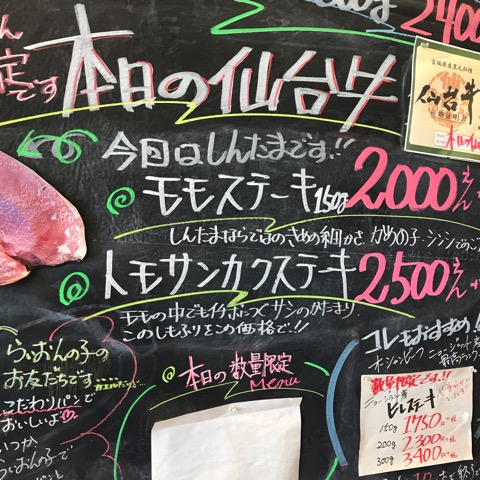 2400
定です
本日の仙台牛
宮城県産黒毛和種
仙台牛
今回はしんたまです!!
モモステーキ150g 2,000えん
しんたまならではのきめの細かさ カメの子・シンシンで
トモサンカクステーキ 2,500えん
モモの中でもイチボにつぐサシのかたまり
このしもふりをこの価格で!!
らいおんの子の
お友だちです
こだわりパンで
おいしいよ
いつか
らいおんの子で
本日の数量限定
Menu
コレもおすすめ!!
オーシャンビーフ
数量限定です!!
ニュージーランド産
ヒレステーキ
150g 1750
200g 2300
300g 3400